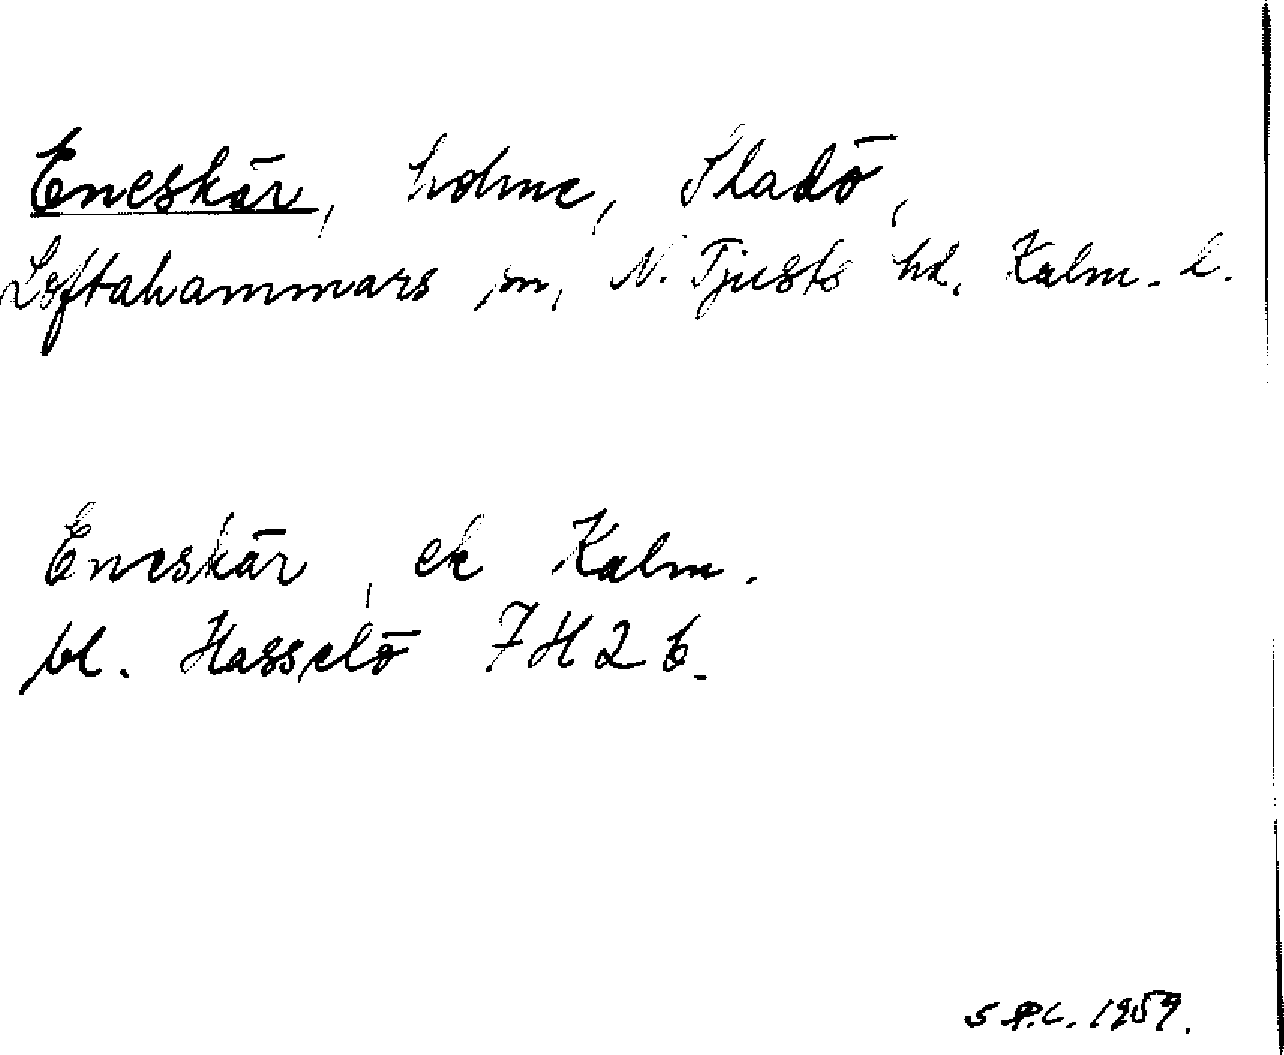 Eneskär, holme, Sladö,
Loftahammars sn, N. Tjusts hd. Kalm. l.
Eneskär, ek Kalm.
bl. Hasselö 7H2b.
S.P.C. 1959.